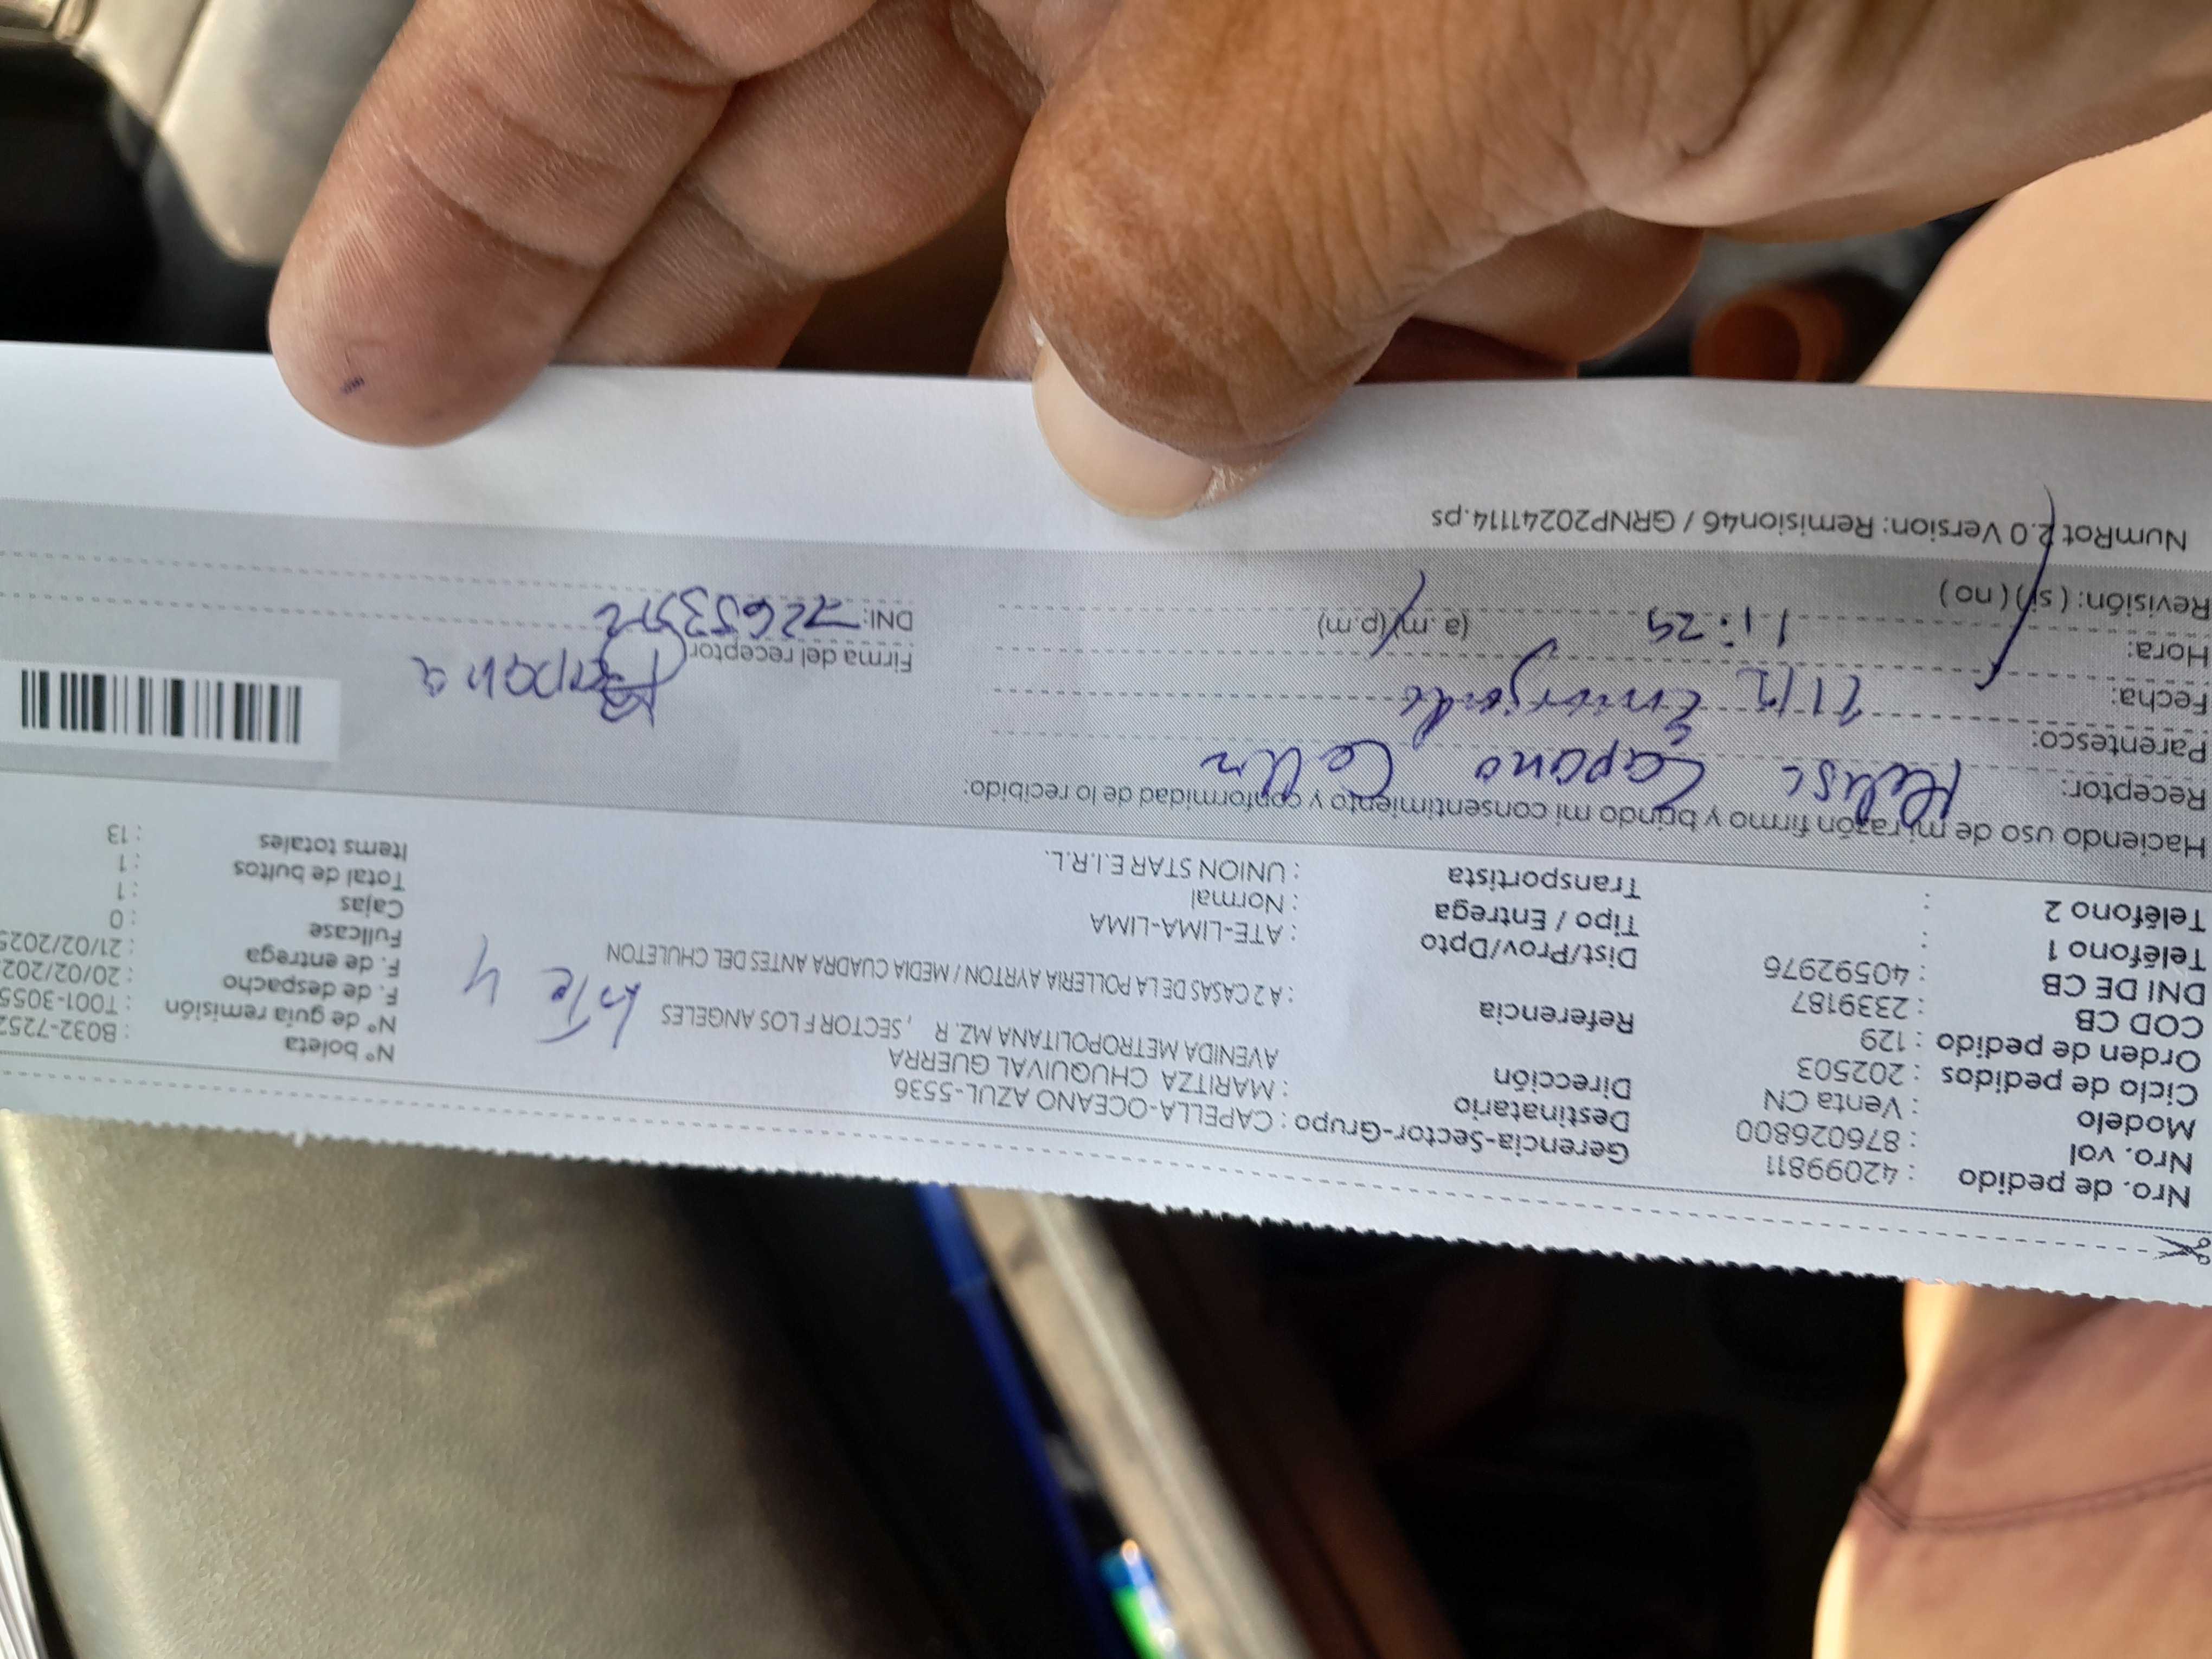 Nro. de pedido : 42099811
Nro. vol : 876026800
Modelo : Venta CN
Ciclo de pedidos : 202503
Orden de pedido : 129
COD CB : 2339187
DNI DE CB : 40592976
Teléfono 1 :
Teléfono 2 :
Gerencia-Sector-Grupo : CAPELLA-OCEANO AZUL-5536
Destinatario : MARITZA CHUQUIVAL GUERRA
Dirección AVENIDA METROPOLITANA MZ. R , SECTOR F LOS ANGELES
LTE 4
Referencia : A 2 CASAS DE LA POLLERIA AYRTON / MEDIA CUADRA ANTES DEL CHULETON
Dist/Prov/Dpto : ATE-LIMA-LIMA
Tipo / Entrega : Normal
Transportista : UNION STAR E.I.R.L.
Nº boleta : B032-725
Nº de guia remisión : T001-3055
F. de despacho : 20/02/202
F. de entrega : 21/02/202
Fullcase : 0
Cajas : 1
Total de bultos : 1
Items totales : 13
Haciendo uso de mi razón firmo y brindo mi consentimiento y conformidad de lo recibido:
Receptor:
Parentesco:
Fecha:
Hora: 11:29 (a.m) (p.m)
Revisión: ( si ) ( no )
Firma del receptor
DNI:
NumRot 2.0 Version: Remision46 / GRNP20241114.ps